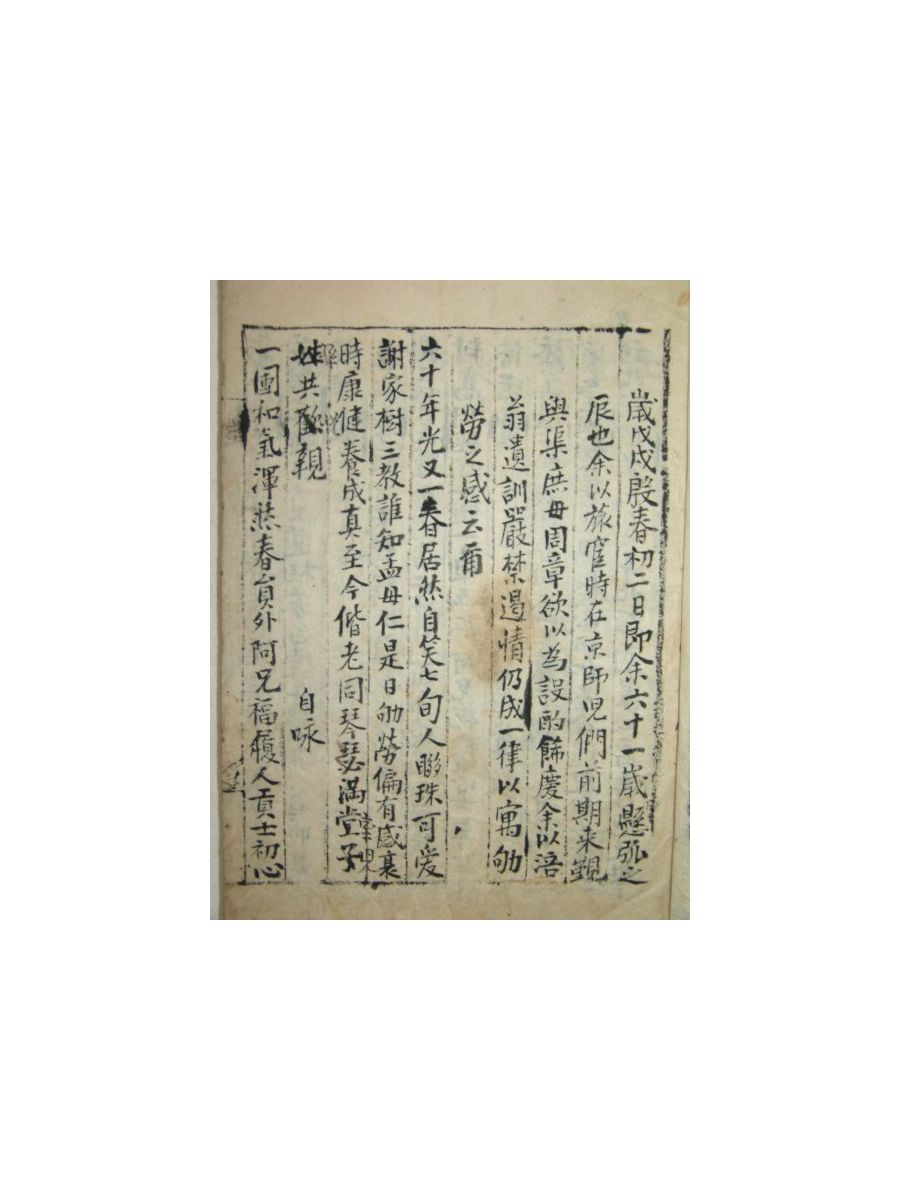 歲戊戌殷春初二日即余六十一歲懸弧之
辰也余以旅宦時在京師児們前期来覲
與渠庶母周章欲以為設酌餙慶余以浯
翁遺訓嚴禁遏情仍成一律以寓劬
勞之感云爾
六十年光又一春居然自笑七旬人聯珠可爱
謝家樹三教誰知孟母仁是日劬勞偏有感衰
時康健養成真至今偕老同琴瑟滿堂子
姓共歡親
自咏
一團和氣渾然春員外阿兄福履人貢士初心